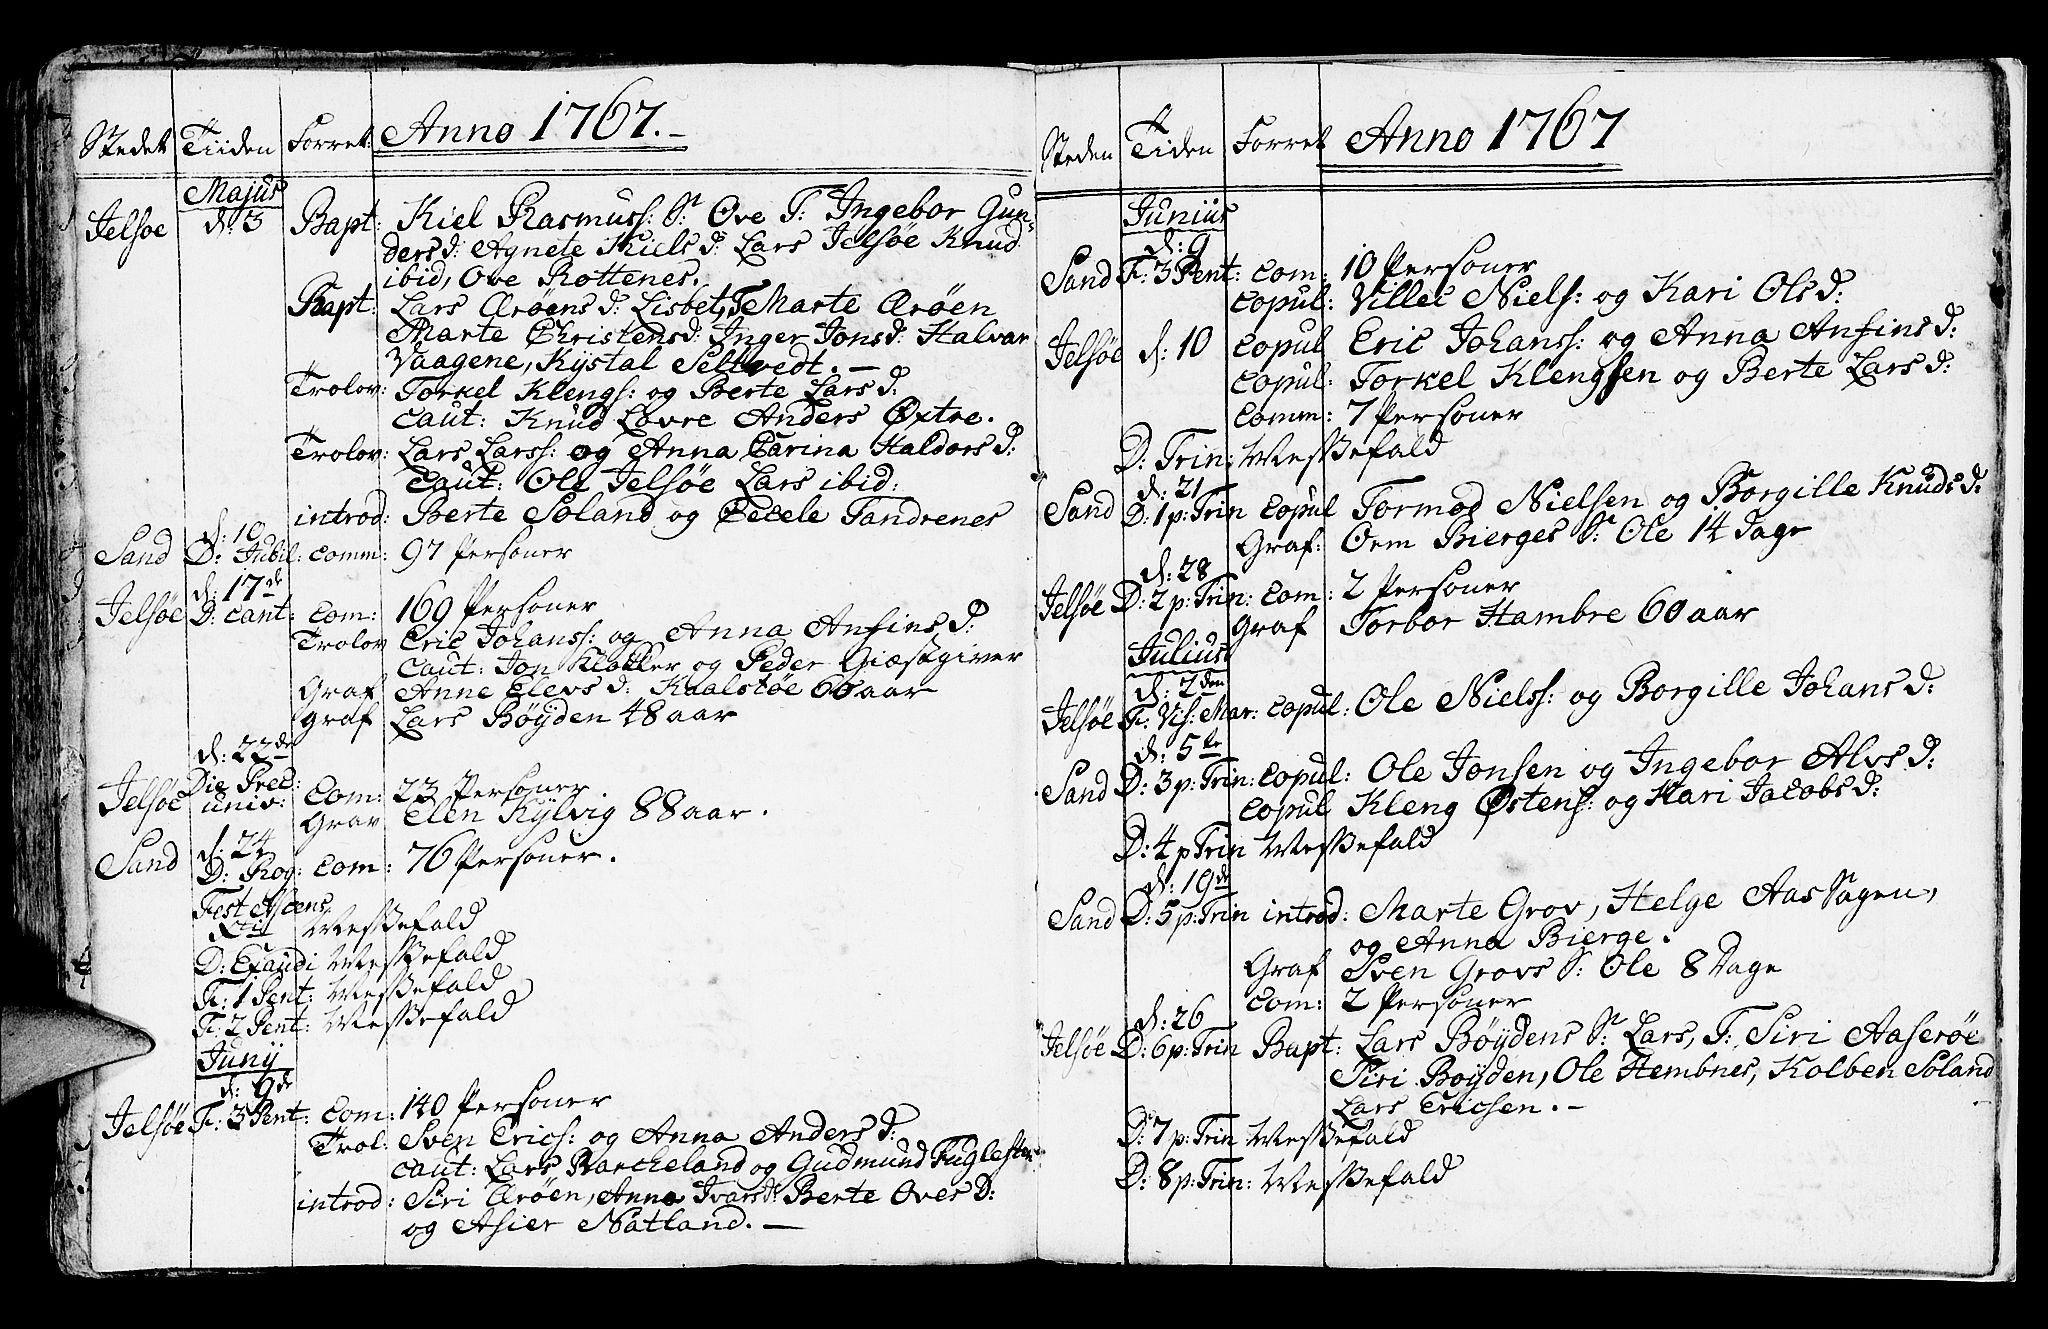 Stedet Tiiden Forret: Anno 1767.–
Majus
Jelsøe d: 3 Bapt: Kiel Rasmuss: S: Ove F: Ingebor Gun-
ders d: Agnete Kiels d: Lars Jelsøe Knud
ibid, Ove Rottenes.
Bapt: Lars Ærøens d: Lisbet, F: Marte Ærøen
Marte Christensd: Inger Jonsd: Halvar
Vaagene, Kystal Seltvedt. –
Trolov: Torkel Klengs: og Berte Lars d:
caut: Knud Lovre Anders Øxtre.
Trolov: Lars Larss: og Anna Carina Haldors d:
Caut: Ole Jelsøe Lars ibid:
introd: Berte Soland og Cecele Tandrenes
d: 10
Sand D: Jubil: comm: 97 Personer
d: 17de
Jelsøe D: cant: com: 169 Personer
Trolov Eric Johanss: og Anna Anfins d:
caut: Jon Klokker og Peder Giæstgiver
Graf Anne Elevs d: Kaalstøe 60 aar
graf Lars Bøyden 48 aar
d: 22de
Die Prec:
Jelsøe univ: Com: 23 Personer.
Grav Elen Kylvig 88 aar.
d: 24
Sand D: Rog: com: 76 Personer.
Fest Ascens:
Xti Messefald
D: Exaudi Messefald
F: 1 Pent: Messefald
F: 2 Pent: Messefald
Junij
d: 9de
Jelsøe F: 3 Pent: Com: 140 Personer
Trol: Sven Erics: og Anna Anders d:
caut: Lars Barcheland og Gudmund Fuglesten
introd: Siri Ærøen, Anna Ivarsd: Berte Overs D:
og Asier Natland. –
Steden Tiden Forret Anno 1767
Junius
d: 9
Sand F: 3 Pent: com: 10 Personer
copul: Villec Niels: og Kari Ols d:
Jelsøe d: 10 copul Eric Johanss: og Anna Anfins d:
copul: Torkel Klengsen og Berte Lars d:
comm: 7 Personer
D: Trin: Messefald
d: 21
Sand D: 1 p: Trin copul Tormod Nielsen og Borgille Knuds d:
Graf: Orm Bierges S: Ole 14 Dage
d: 28
Jelsøe D: 2 p: Trin: com: 2 Personer
Graf Torbor Hambre 60 aar
Julius
d: 2den
Jelsøe F: Vis: Mar: copul: Ole Nielss: og Borgille Johans d:
d: 5te
Sand D: 3 p: Trin: copul: Ole Jonsen og Ingebor Alvs d:
copul Kleng Østens: og Kari Jacobs d:
D: 4 p Trin Messefald
d: 19de
Sand D: 5 p: Trin introd: Marte Grov, Helge Aas Hagen,
og Anna Bierge.
Graf Sven Grovs S: Ole 8 Dage
com: 2 Personer
d: 26
Jelsøe D: 6 p: Trin Bapt: Lars Bøydens S: Lars, F: Siri Aaserøe
Siri Boyden, Ole Hembnes, Kolben Soland
Lars Ericsen. –
D: 7 p: Trin Messefald
D: 8 p: Trin: Messefald